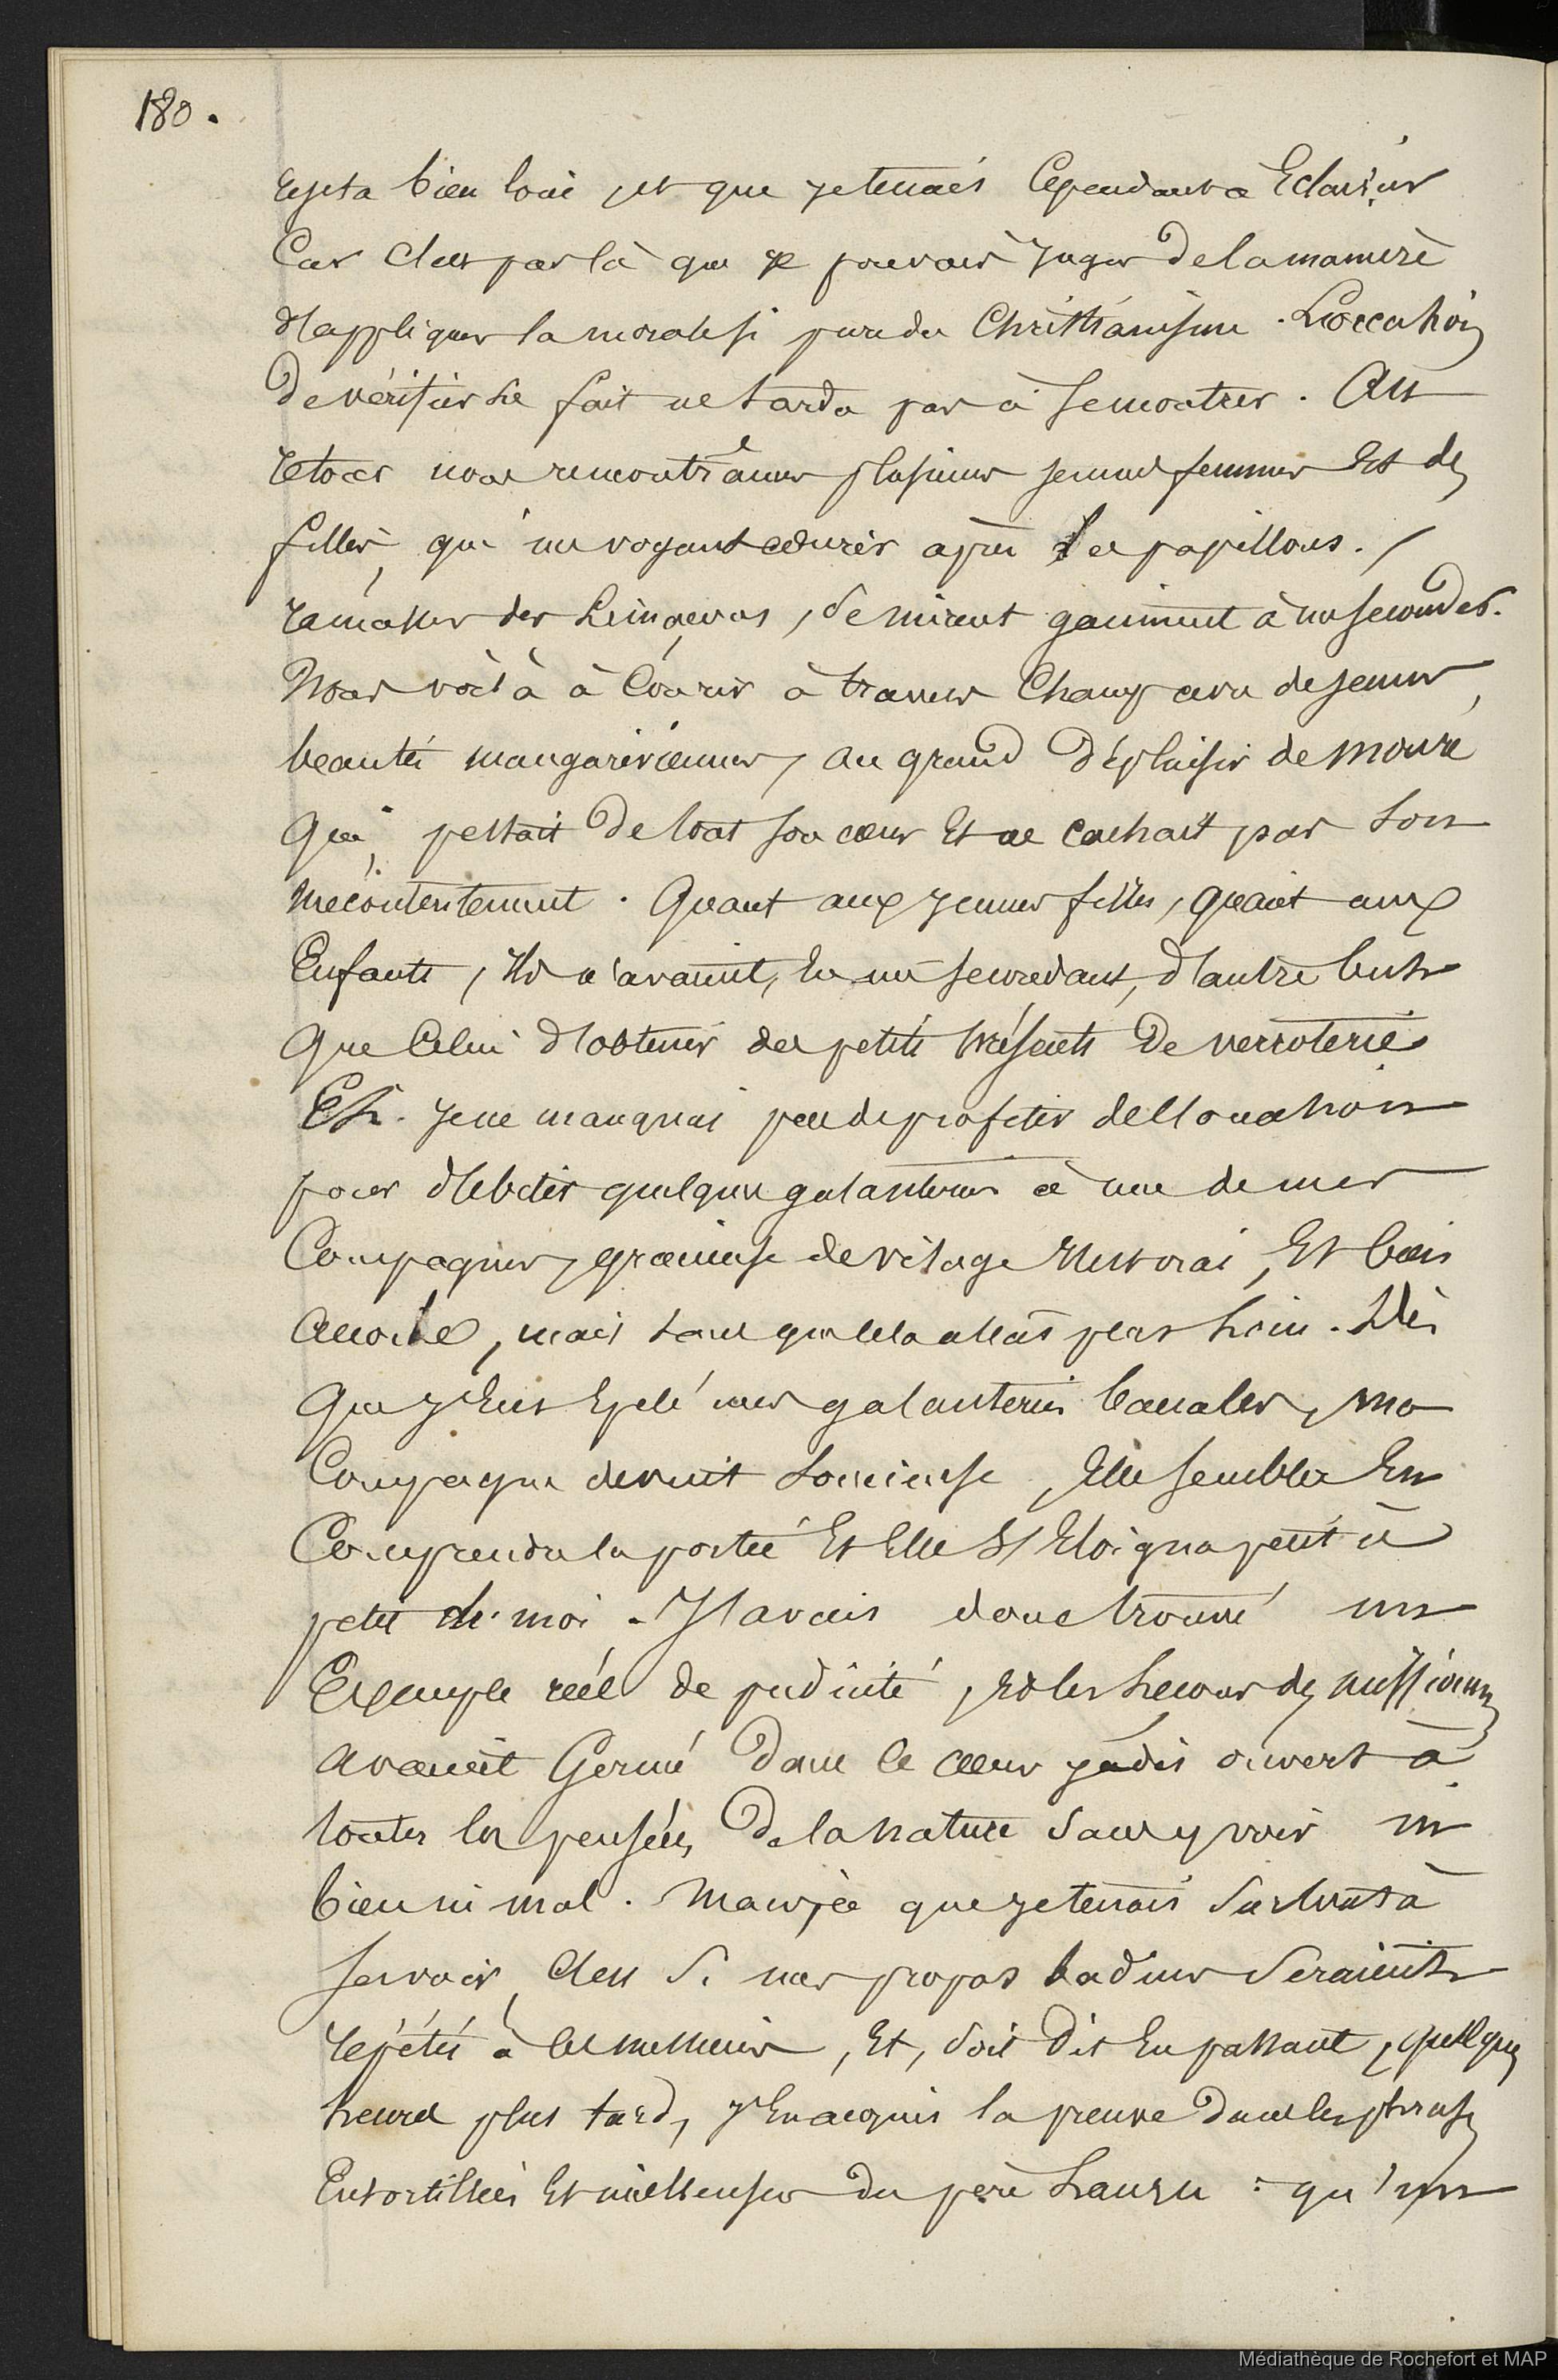 180.
rejeta bien loin, et que je tenais cependant à Eclaircir
Car c'est par là que je pouvais juger de la manière
d'appliquer la morale si pure du Christianisme. L'occasion
de vérifier le fait ne tarda pas à se montrer. Au
retour nous rencontrâmes plusieurs jeunes femmes Et des
filles, qui me voyant courir après les papillons.
ramasser des Limaçons, se mirent gaiment à me seconder.
Nous voilà à courir à travers champs avec de jeunes
beautés mangaréviennes, au grand déplaisir de
qui, pestait de tout son cœur Et ne cachait pas son
mécontentement. Quant aux jeunes filles, quant aux
Enfants, ils n'avaient, En me secondant, d'autre but
que Celui d'obtenir des petits présents de verroterie
Et je ne manquai pas de profiter de l'occasion
pour débiter quelques galanteries à une de mes
Compagnes, gracieuse de visage il est vrai, Et bien
accorte, mais sans que cela allât plus loin. Dès
que j'Eus mes galanteries banales, ma
Compagne devint soucieuse, Elle sembla En
Comprendre la portée Et Elle s'Eloigna petit à
petit de moi. J'avais donc trouvé un
Exemple réel de pudicité, Et les leçons des missionn
avaient Germé dans le cœur jadis ouvert à
toutes les pensées de la nature sans y voir ni
bien ni mal. Mais ce que je tenais surtout à
savoir, c'est si mes propos badins seraient
répétés à ces messieurs, Et, soit dit En passant, quelques
heures plus tard, j'En acquis la preuve dans les phrases
Entortillées Et mielleuses du père : qu'un
Médiathèque de Rochefort et MAP